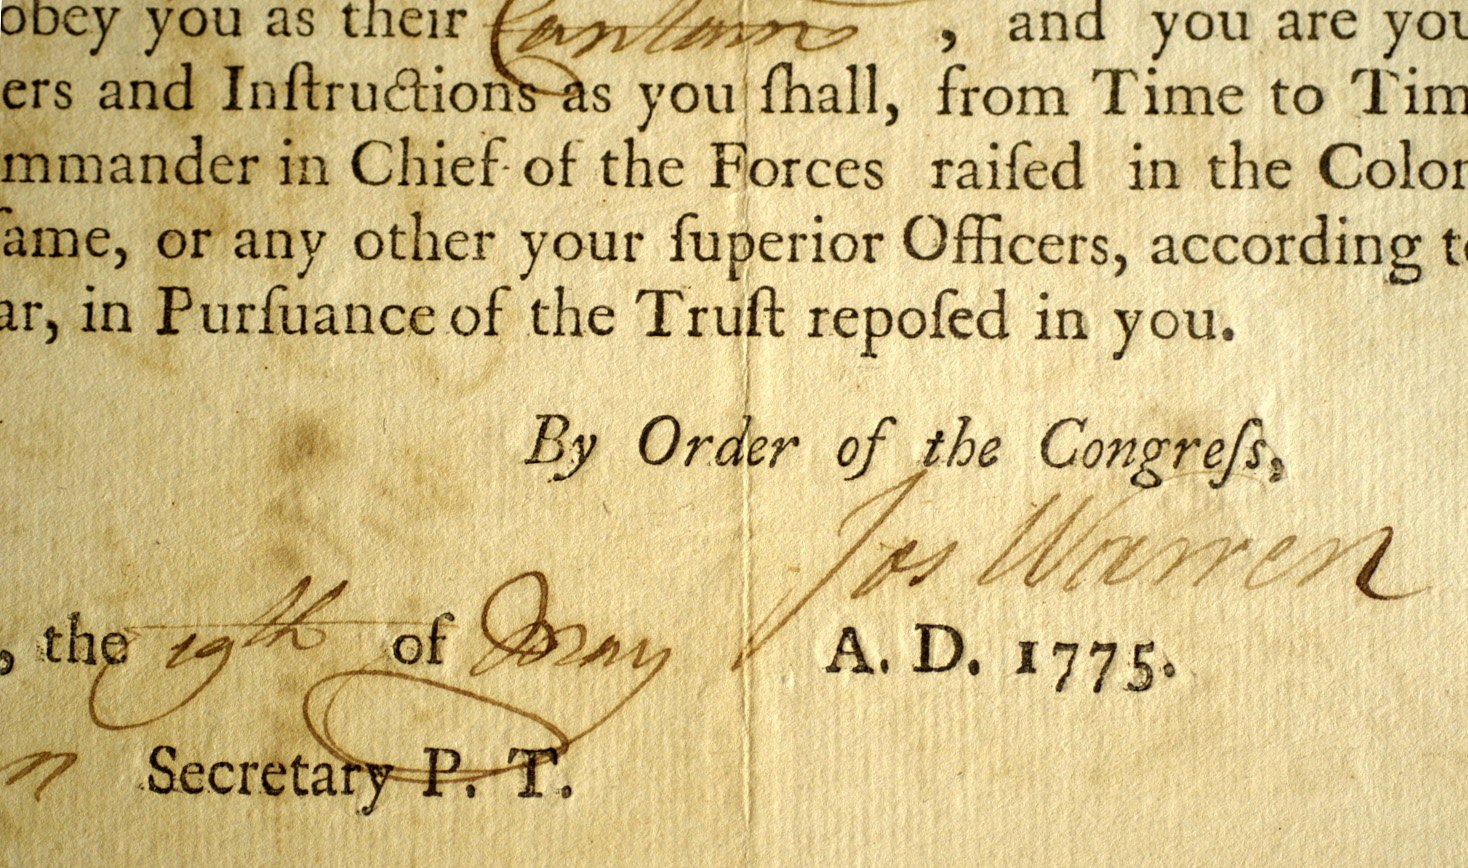 obey you as their Captain , and you are you
ers and Inſtructions as you ſhall, from Time to Tim
mmander in Chief of the Forces raiſed in the Colon
ſame, or any other your ſuperior Officers, according to
ar, in Purſuance of the Truſt repoſed in you.
By Order of the Congreſs,
Jos Warren
, the 19th of May A. D. 1775.
n Secretary P. T.